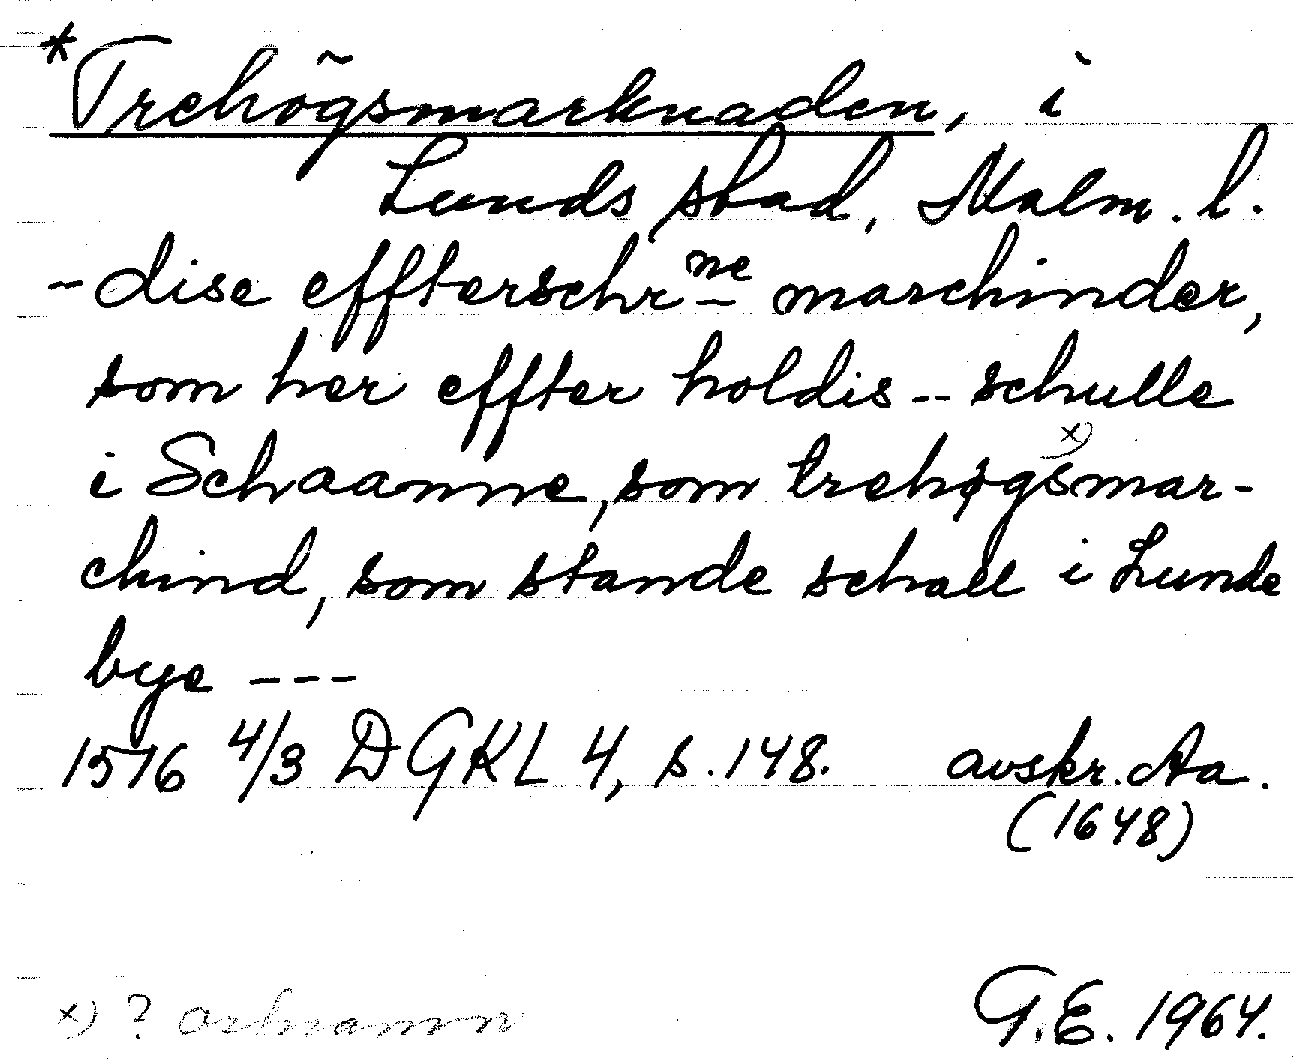 *Trehögsmarknaden, i
Lunds stad, Malm. l.
- dise effterschr ne marchinder,
som her effter holdis -- schulle
i Schaanne, som trehøgsmar- x)
chind, som stande schall i Lunde
bye ---
1576 4/3 DGKL 4, s. 148. avskr. Aa.
(1648)
x) ? ortnamn
G.E. 1964.